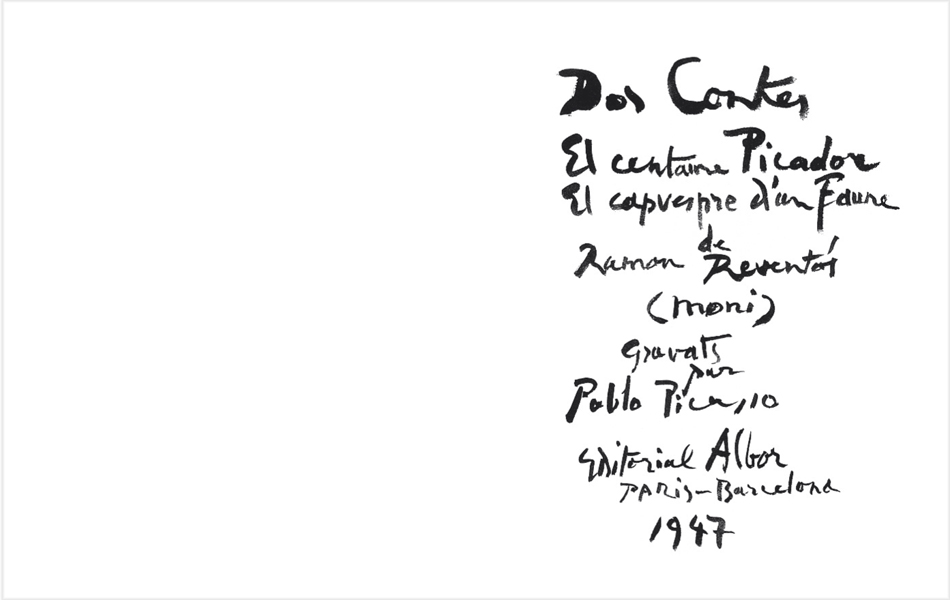 Dos Contes
El centaure Picador
El capvespre d'un Faune
de
Ramon Reventós
(moni)
gravats
par
Pablo Picasso
Editorial Albor
PARis-Barcelona
1947